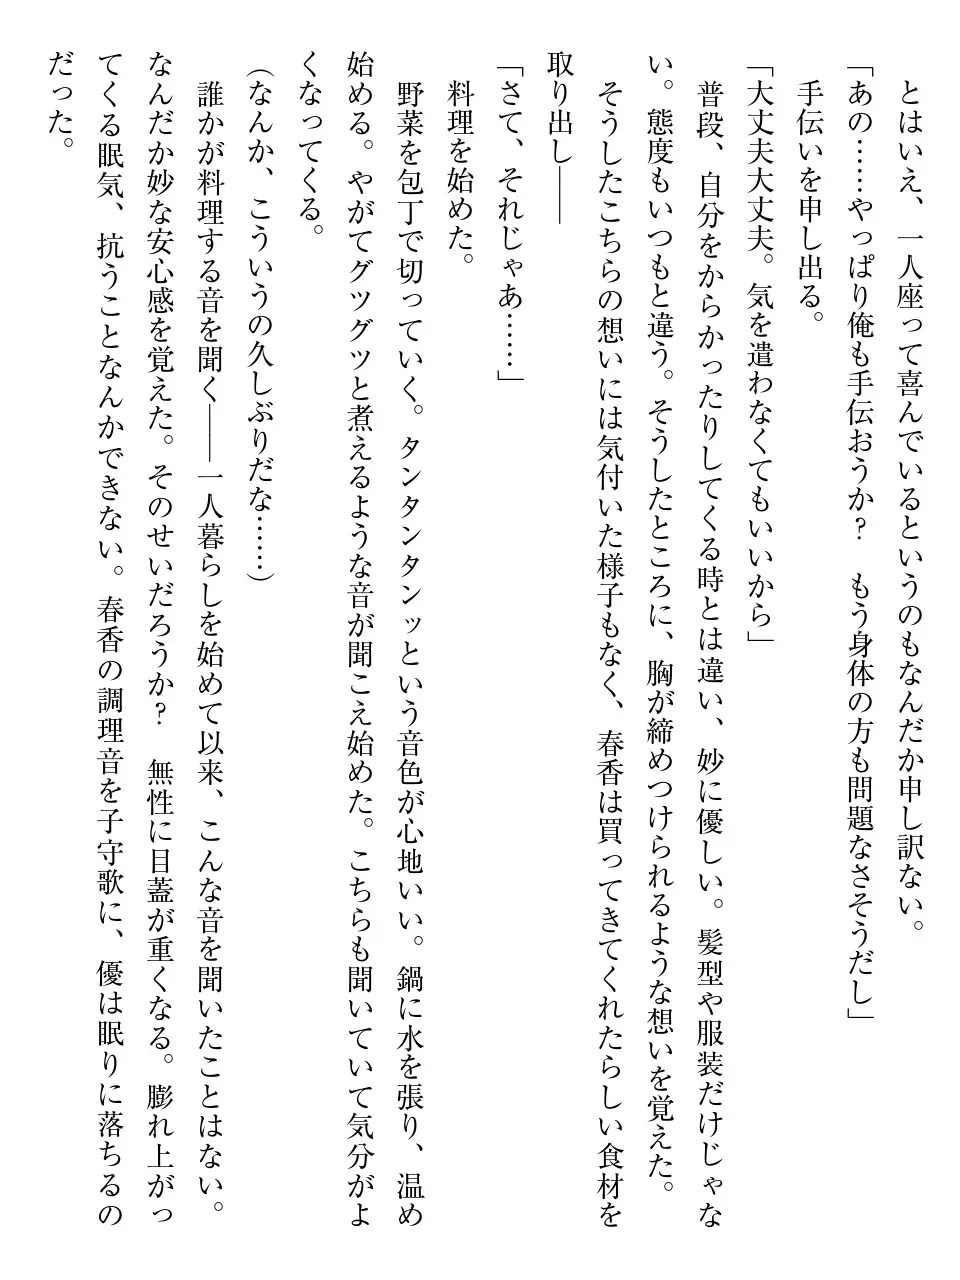 とはいえ、一人座って喜んでいるというのもなんだか申し訳ない。
「あの……やっぱり俺も手伝おうか？　もう身体の方も問題なさそうだし」
手伝いを申し出る。
「大丈夫大丈夫。気を遣わなくてもいいから」
普段、自分をからかったりしてくる時とは違い、妙に優しい。髪型や服装だけじゃな
い。態度もいつもと違う。そうしたところに、胸が締めつけられるような想いを覚えた。
そうしたこちらの想いには気付いた様子もなく、春香は買ってきてくれたらしい食材を
取り出し――
「さて、それじゃあ……」
料理を始めた。
野菜を包丁で切っていく。タンタンタンッという音色が心地いい。鍋に水を張り、温め
始める。やがてグツグツと煮えるような音が聞こえ始めた。こちらも聞いていて気分がよ
くなってくる。
（なんか、こういうの久しぶりだな……）
誰かが料理する音を聞く――一人暮らしを始めて以来、こんな音を聞いたことはない。
なんだか妙な安心感を覚えた。そのせいだろうか？　無性に目蓋が重くなる。膨れ上がっ
てくる眠気、抗うことなんかできない。春香の調理音を子守歌に、優は眠りに落ちるの
だった。